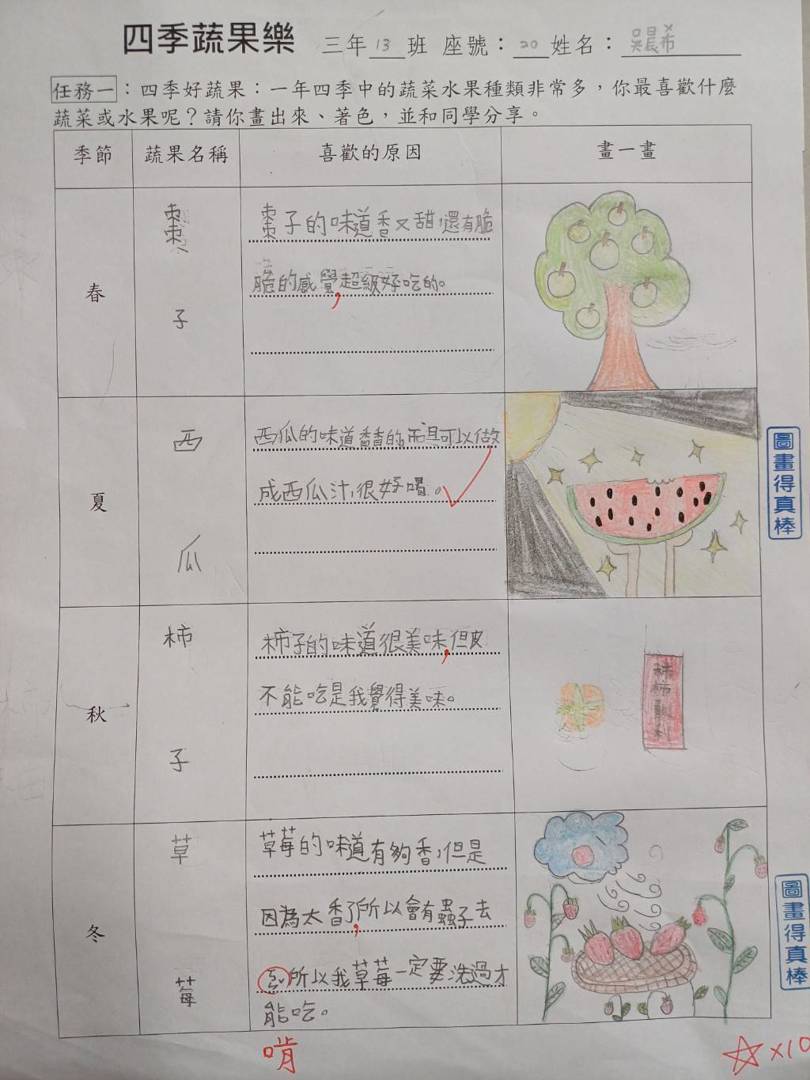 四季蔬果樂 三年13班 座號：20姓名：
任務一：四季好蔬果：一年四季中的蔬菜水果種類非常多，你最喜歡什麼
蔬菜或水果呢？請你畫出來、著色，並和同學分享。
季節 蔬果名稱 喜歡的原因 畫一畫
春
棗
子
棗子的味道香又甜，還有脆
脆的感覺，超級好吃的。
夏
西
瓜
西瓜的味道香香的，而且可以做
成西瓜汁，很好喝。
圖畫得真棒
秋
柿
子
柿子的味道很美味，但皮
不能吃是我覺得美味。
冬
草
莓
草莓的味道有夠香，但是
因為太香了，所以會有蟲子去
所以我草莓一定要洗過才
能吃。
啃
圖畫得真棒
☆×10